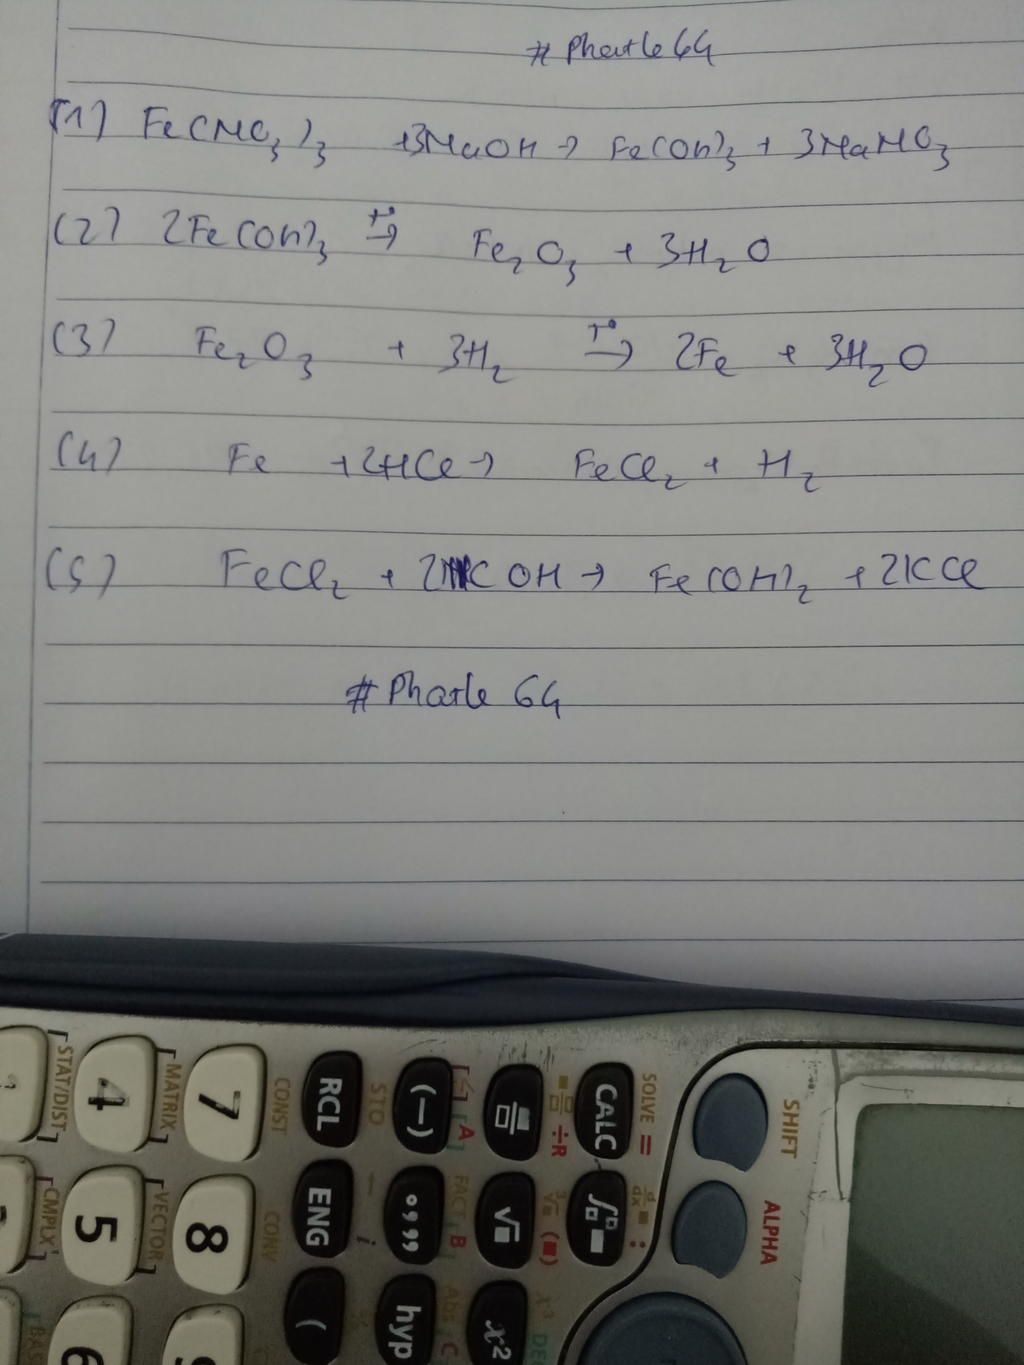 # Phatle 64
(1) Fe(NO₃)₃ +3NaOH → Fe(OH)₃ + 3NaNO₃
(2) 2Fe(OH)₃ t° → Fe₂O₃ + 3H₂O
(3) Fe₂O₃ + 3H₂ t° → 2Fe + 3H₂O
(4) Fe +2HCl → FeCl₂ + H₂
(5) FeCl₂ + 2KOH → Fe(OH)₂ + 2KCl
# Phatle 64
SHIFT
ALPHA
SOLVE =
CALC
÷R
d/dx :
√
x²
(—) A
FACT B
Abs C
hyp
STO
RCL
ENG
i
(
CONST
CONV
7
8
MATRIX
VECTOR
4
5
6
STAT/DIST
CMPLX